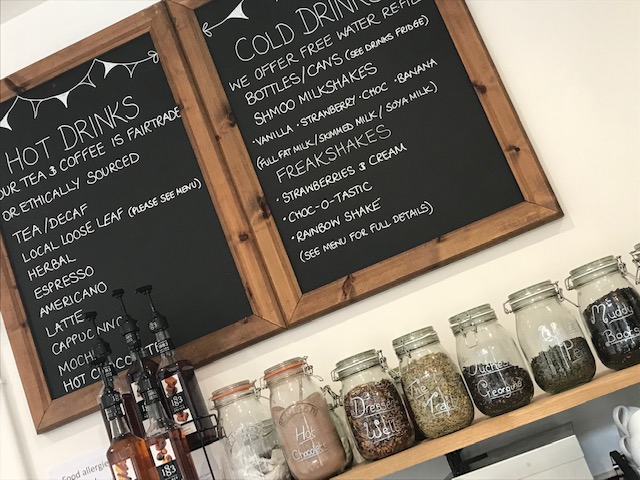 HOT DRINKS
OUR TEA & COFFEE IS FAIRTRADE
OR ETHICALLY SOURCED
TEA/DECAF
LOCAL LOOSE LEAF (PLEASE SEE MENU)
HERBAL
ESPRESSO
AMERICANO
LATTE
CAPPUCCINO
MOCHA
HOT CHOCOLATE
COLD DRINKS
WE OFFER FREE WATER RE-FILL
BOTTLES/CANS (SEE DRINKS FRIDGE)
SHMOO MILKSHAKES
• VANILLA • STRAWBERRY • CHOC • BANANA
(FULL FAT MILK / SKIMMED MILK / SOYA MILK)
FREAKSHAKES
• STRAWBERRIES & CREAM
• CHOC-O-TASTIC
• RAINBOW SHAKE
(SEE MENU FOR FULL DETAILS)
183
183
Food allergie
Hot
Chocolate
Dressed
Well
The
Trail
Duchess
Georgina
Muddy
Boots